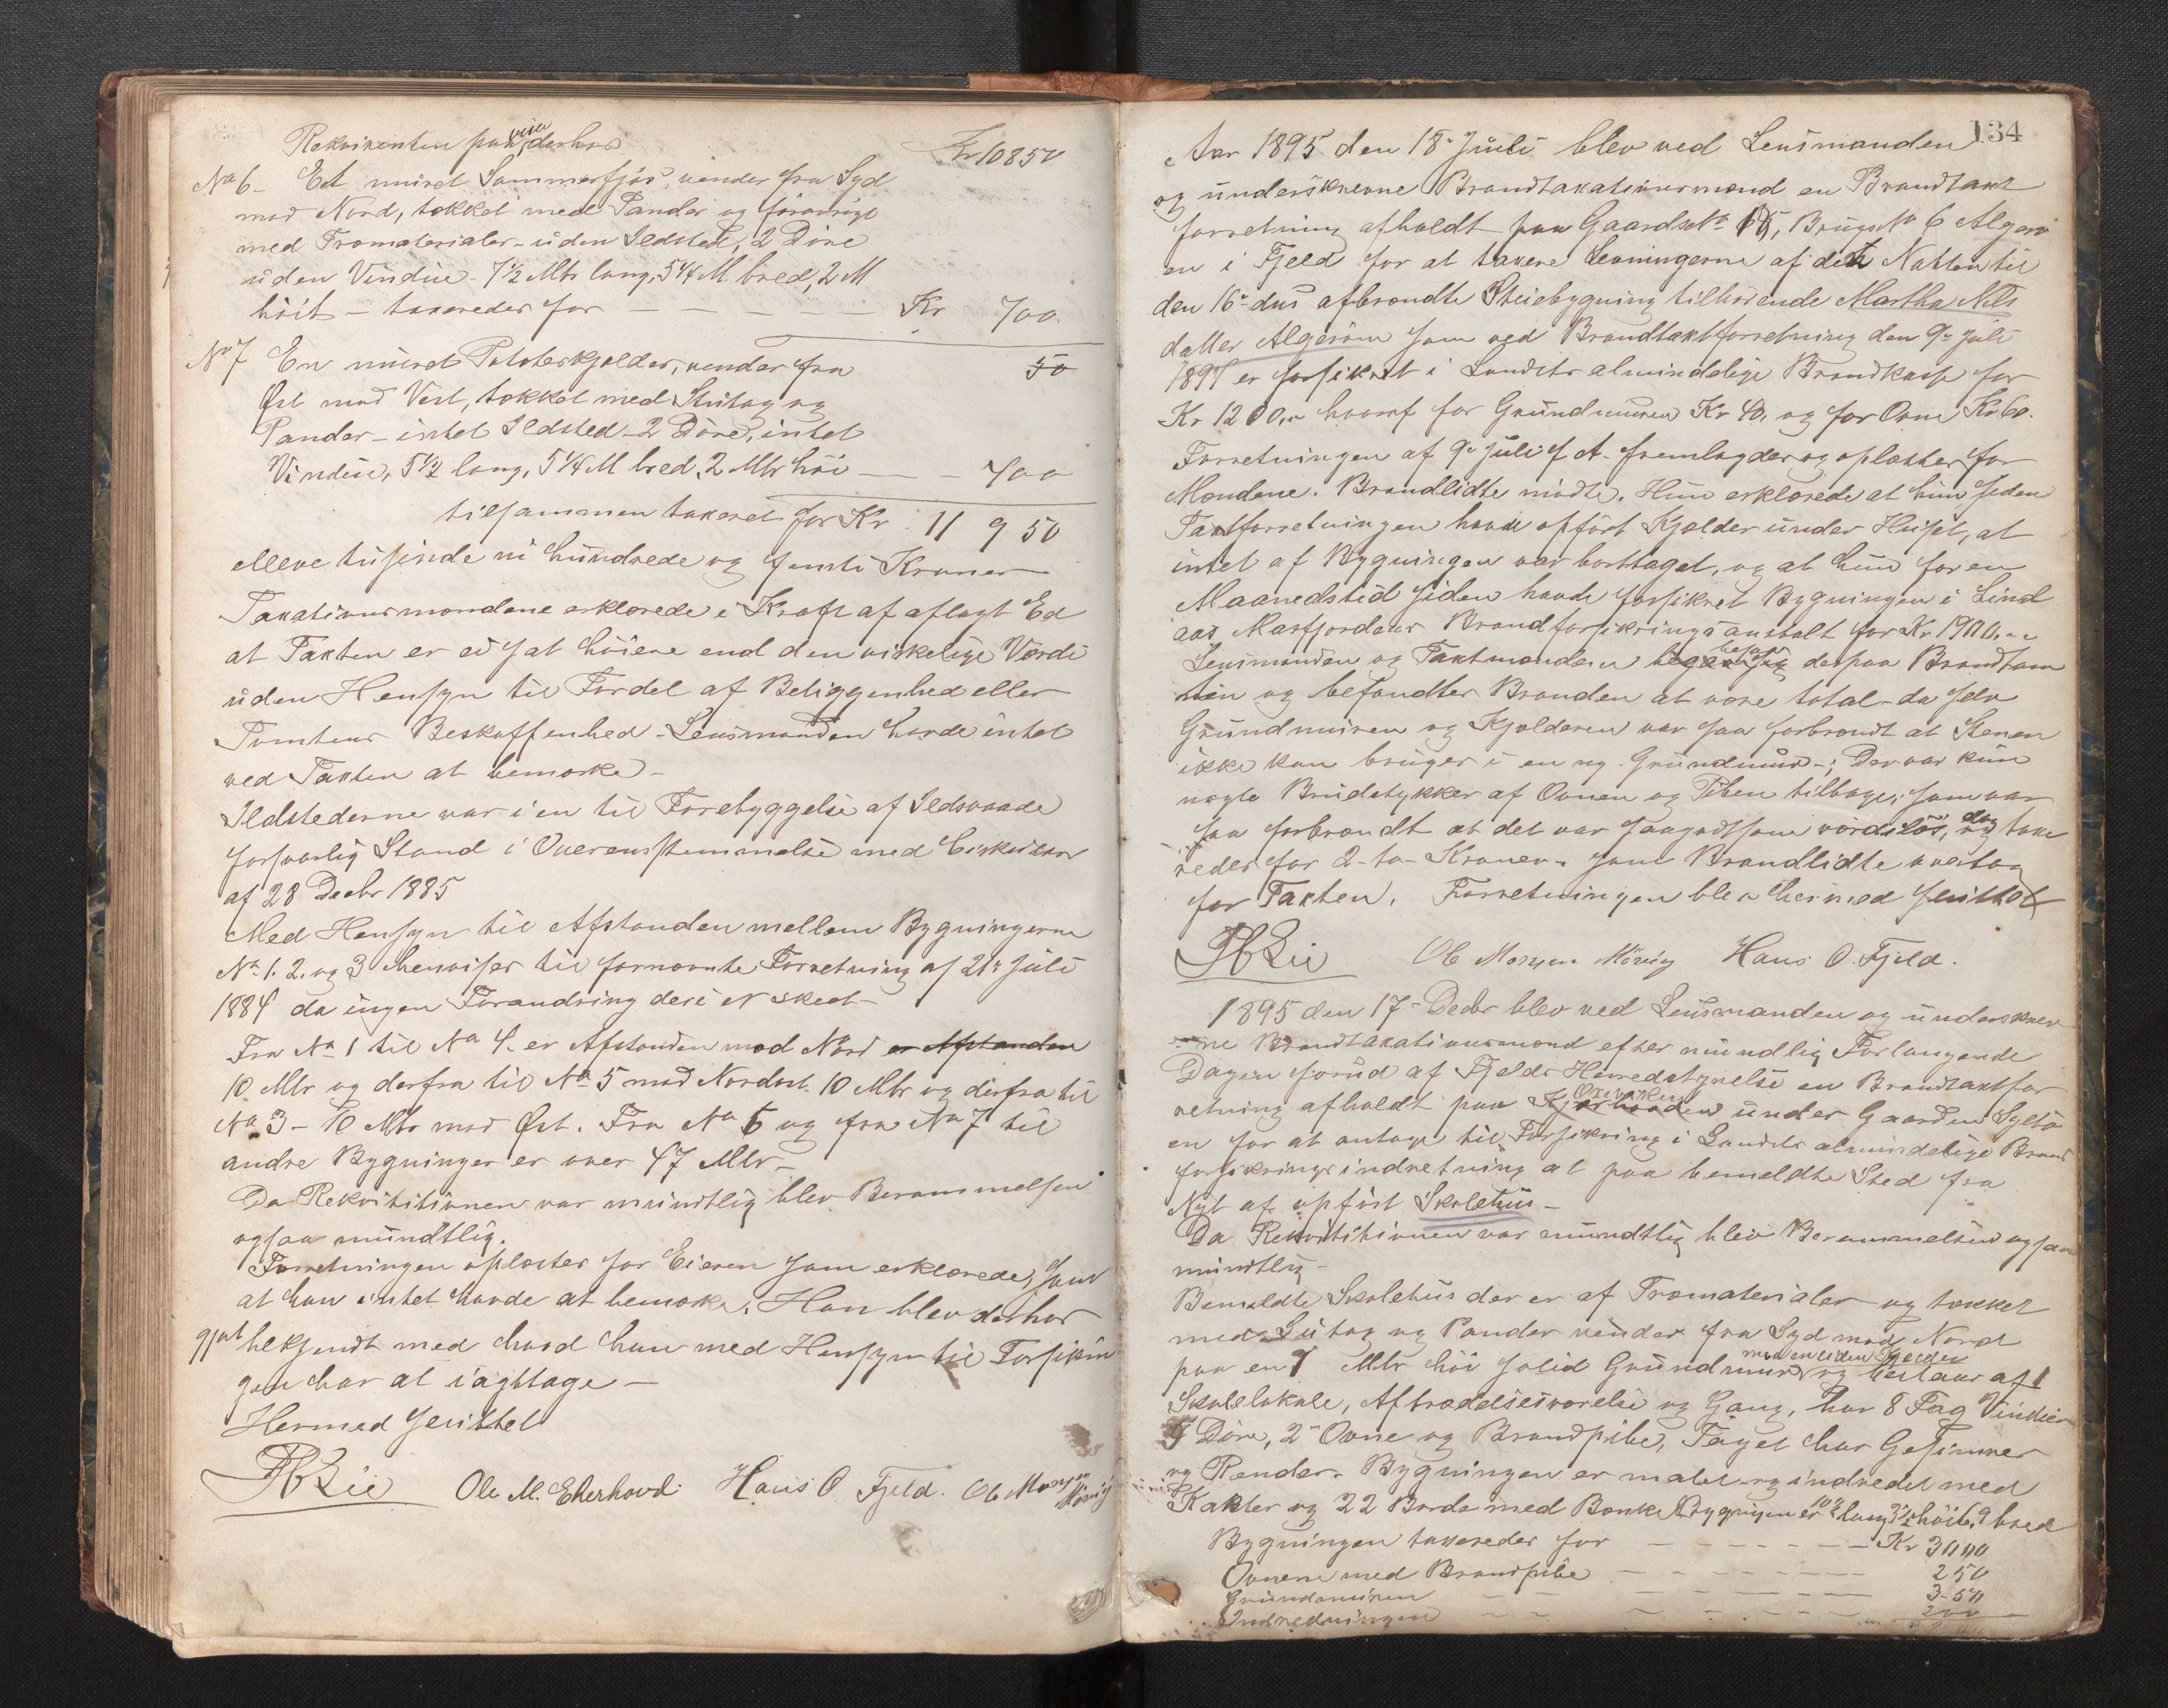 Rekvirenten paaviser derhos
Kr 10850
No 6. Et muret Sommerfjøs, vender fra Syd
mod Nord, tækket med Pander og forøvrigt
med Træmaterialer - uden Ildsted, 2 Døre
uden Vindue 7½ Mtr lang, 5¼ M. bred, 2 M
høit - taxeredes for — — — — — Kr 700.
No 7 En muret Poteteskjelder, vender fra
50
Øst mod Vest, tækket med Stutag og
Pander - intet Ildsted - 2 Døre, intet
Vindue, 5½ lang, 5¼ M bred, 2 Mtr høi — — 400
tilsammen taxeret for Kr. 11 950
elleve tusinde ni hundrede og femti Kroner
Taxationsmændene erklærede i Kraft af aflagt Ed
at Taxten er ei sat høiere end den virkelige Værdi
uden Hensyn til Fordel af Beliggenhed eller
Tomtens Beskaffenhed - Lensmanden havde intet
ved Taxten at bemærke -
Ildstederne var i en til Forebyggelse af Ildsvaade
forsvarlig Stand i Overensstemmelse med Cirkulær
af 28 Decbr 1885
Med Hensyn til Afstanden mellem Bygningerne
No 1. 2. og 3 henvises til fornævnte Forretning af 21de Juli
1884 da ingen Forandring deri er skeet -
Fra No 1 til No 4. er Afstanden mod Nord er Afstanden
10 Mtr og derfra til No 5 mod Nordost. 10 Mtr og derfra til
No 3 - 10 Mtr mod Øst. Fra No 6 og fra No 7 til
andre Bygninger er over 47 Mtr -
Da Rekvisitionen var mundtlig blev Berammelsen
ogsaa mundtlig.
Forretningen oplæstes for Eieren som erklærede,
at han intet havde at bemærke. Han blev derhos
gjort bekjendt med hvad han med Hensyn til Forsikrin
gen har at iagttage -
Hermed sluttet
Ole M. Ekerhovd. Hans O Fjeld. Ole Monsen Morvig
134
Aar 1895 den 18de Juli blev ved Lensmanden
og underskrevne Brandtaxationsmænd en Brandtaxt
forretning afholdt paa Gaards No 15, Brugs No 6 Algerø
en i Fjeld for at taxere Levningerne af den Natten til
den 16de ds afbrændte Stuebygning tilhørende Martha Nils
datter Algerøen som ved Brandtaxtforretning den 9de Juli
1894 er forsikret i Landets almindelige Brandkasse for
Kr 1200,- hvoraf for Grundmuren Kr 40, og for Ovne Kr 60.
Forretningen af 9de Juli f A. fremlagdes og oplæstes for
Mændene. Brandlidte mødte. Hun erklærede at hun siden
Taxtforretningen havde opført Kjælder under Huset, at
intet af Bygningen var borttaget, og at hun for en
Maanedstid siden havde forsikret Bygningen i Lind
aas Masfjordens Brandforsikringsanstalt for Kr 1900,-
Lensmanden og Taxtmændene besaa derpaa Brandtom
ten og befandtes Branden at være total - da selv
Grundmuren og Kjælderen var saa forbrændt at Stenen
ikke kan bruges i en ny Grundmur -; Der var kun
nogle Brudstykker af Ovnen og Piben tilbage, som var
saa forbrændt at det var saagodtsom værdiløs, dog taxe
redes for 2 - to - Kroner - som Brandlidte overtog
for Taxten. Forretningen blev hermed sluttet
Ole Monsen Morvig Hans O. Fjeld.
1895 den 17de Decbr blev ved Lensmanden og underskrev
ne Brandtaxationsmænd efter mundlig Forlangende
Dagen forud af Fjelds Herredstyrelse en Brandtaxtfor
retning afholdt paa under Gaarden Syltø
en for at antage til Forsikring i Landets almindelige Brand
forsikringsindretning et paa bemeldte Sted fra
Nyt af opført Skolehus -
Da Rekvisitionen var mundtlig blev Berammelsen ogsaa
mundtlig -
Bemeldte Skolehus der er af Træmaterialer og tækket
med Sutag og Pander vender fra Syd mod Nord
paa en 1 Mtr høi solid Grundmur med en liden Kjelder og bestaar af 1
Skolelokale, Aftrædelsesværelse og Gang, har 8 Fag Vinduer
5 Døre, 2 Ovne og Brandpibe, Taget har Gesimser
og Render. Bygningen er malet og indredet med
Kakter og 22 Borde med Bænke. Bygningen er 10½ lang 3½ høit, 9 bred
Bygningen taxeredes for — — — — — Kr 3000
Ovnene med Brandpibe — — — — — 250
Grundmuren — — — — — 350
Indredningen — — — — — 200